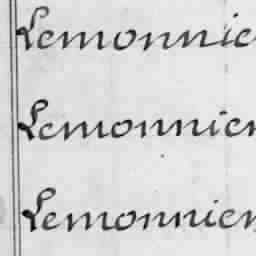 Lemonnie
Lemonnier
Lemonnier